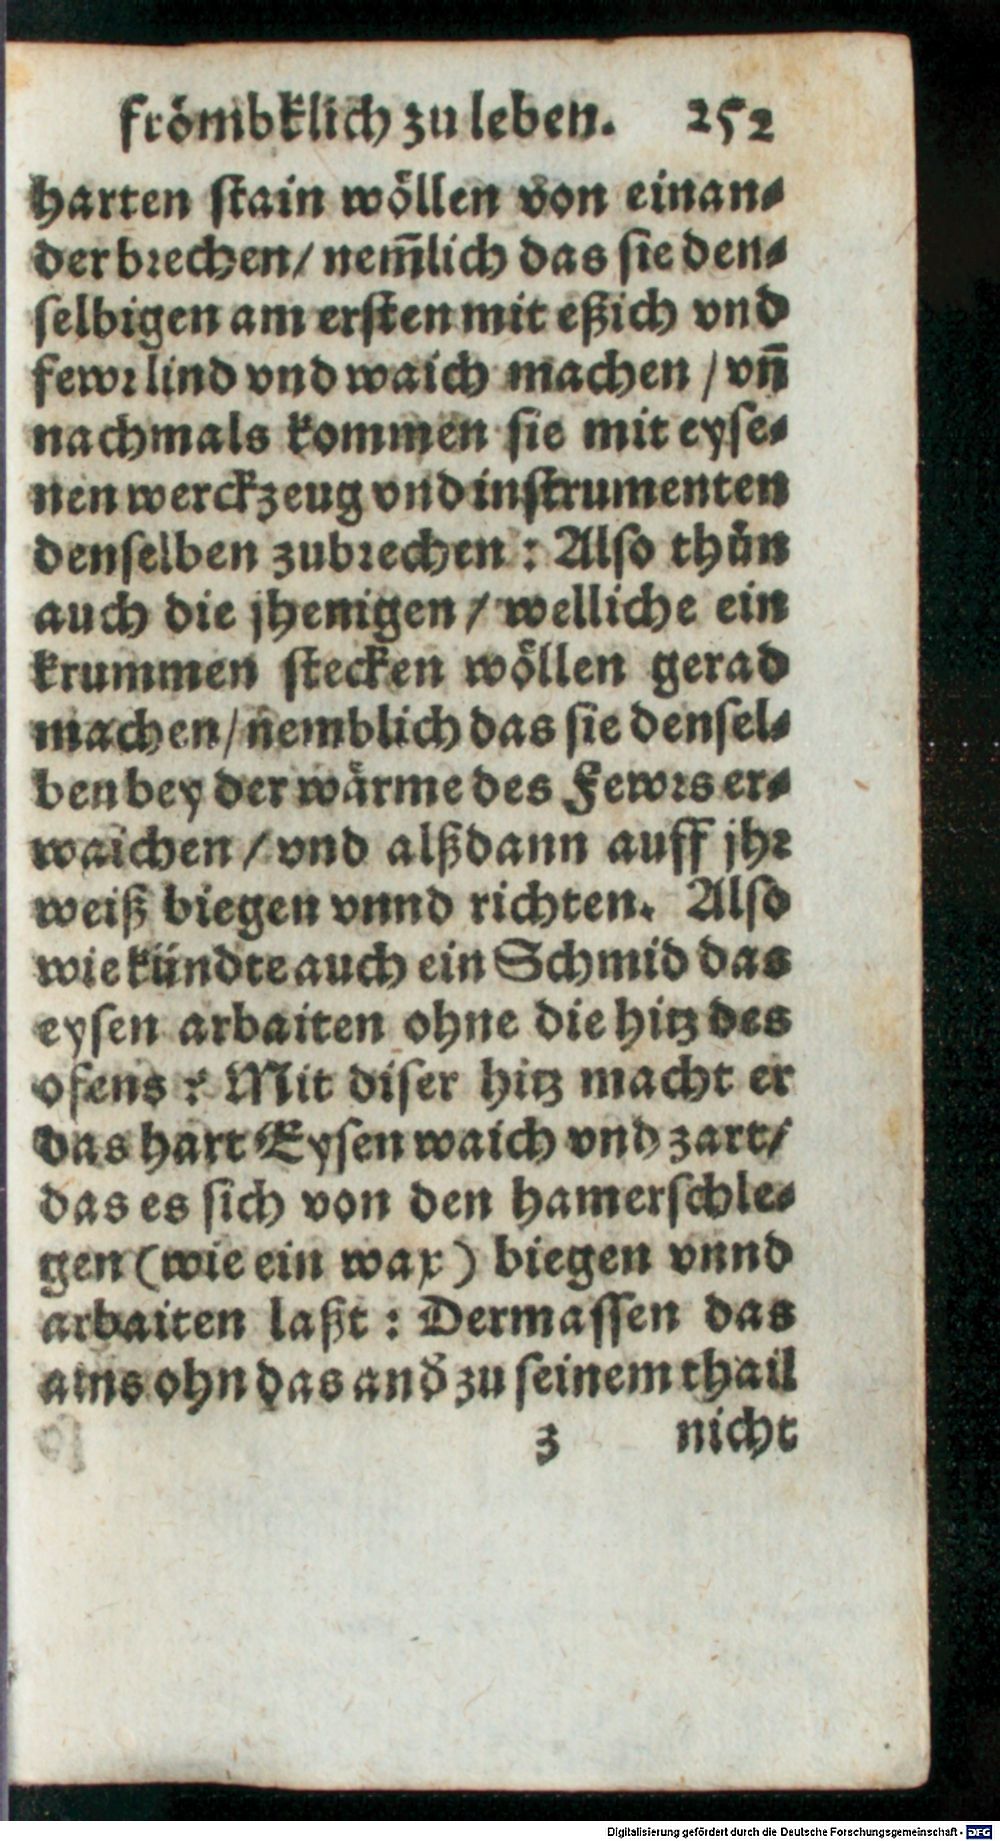 frömbklich zu leben. 252
harten stain wöllen von einan⸗
der brechen/ nem̃lich das sie den⸗
selbigen am ersten mit eßich vnd
fewr lind vnd waich machen / vñ
nachmals kommen sie mit eyse⸗
nen werckzeug vnd instrumenten
denselben zubrechen : Also thůn
auch die jhenigen / welliche ein
krummen stecken wöllen gerad
machen/ nemblich das sie densel⸗
ben bey der wärme des Fewrs er⸗
waichen / vnd alßdann auff jhr
weiß biegen vnnd richten. Also
wie kündte auch ein Schmid das
eysen arbaiten ohne die hitz des
ofens ? Mit diser hitz macht er
das hart Eysen waich vnd zart/
das es sich von den hamerschle⸗
gen (wie ein wax) biegen vnnd
arbaiten laßt : Dermassen das
ains ohn das and̃ zu seinem thail
z nicht
Digitalisierung gefördert durch die Deutsche Forschungsgemeinschaft - DFG